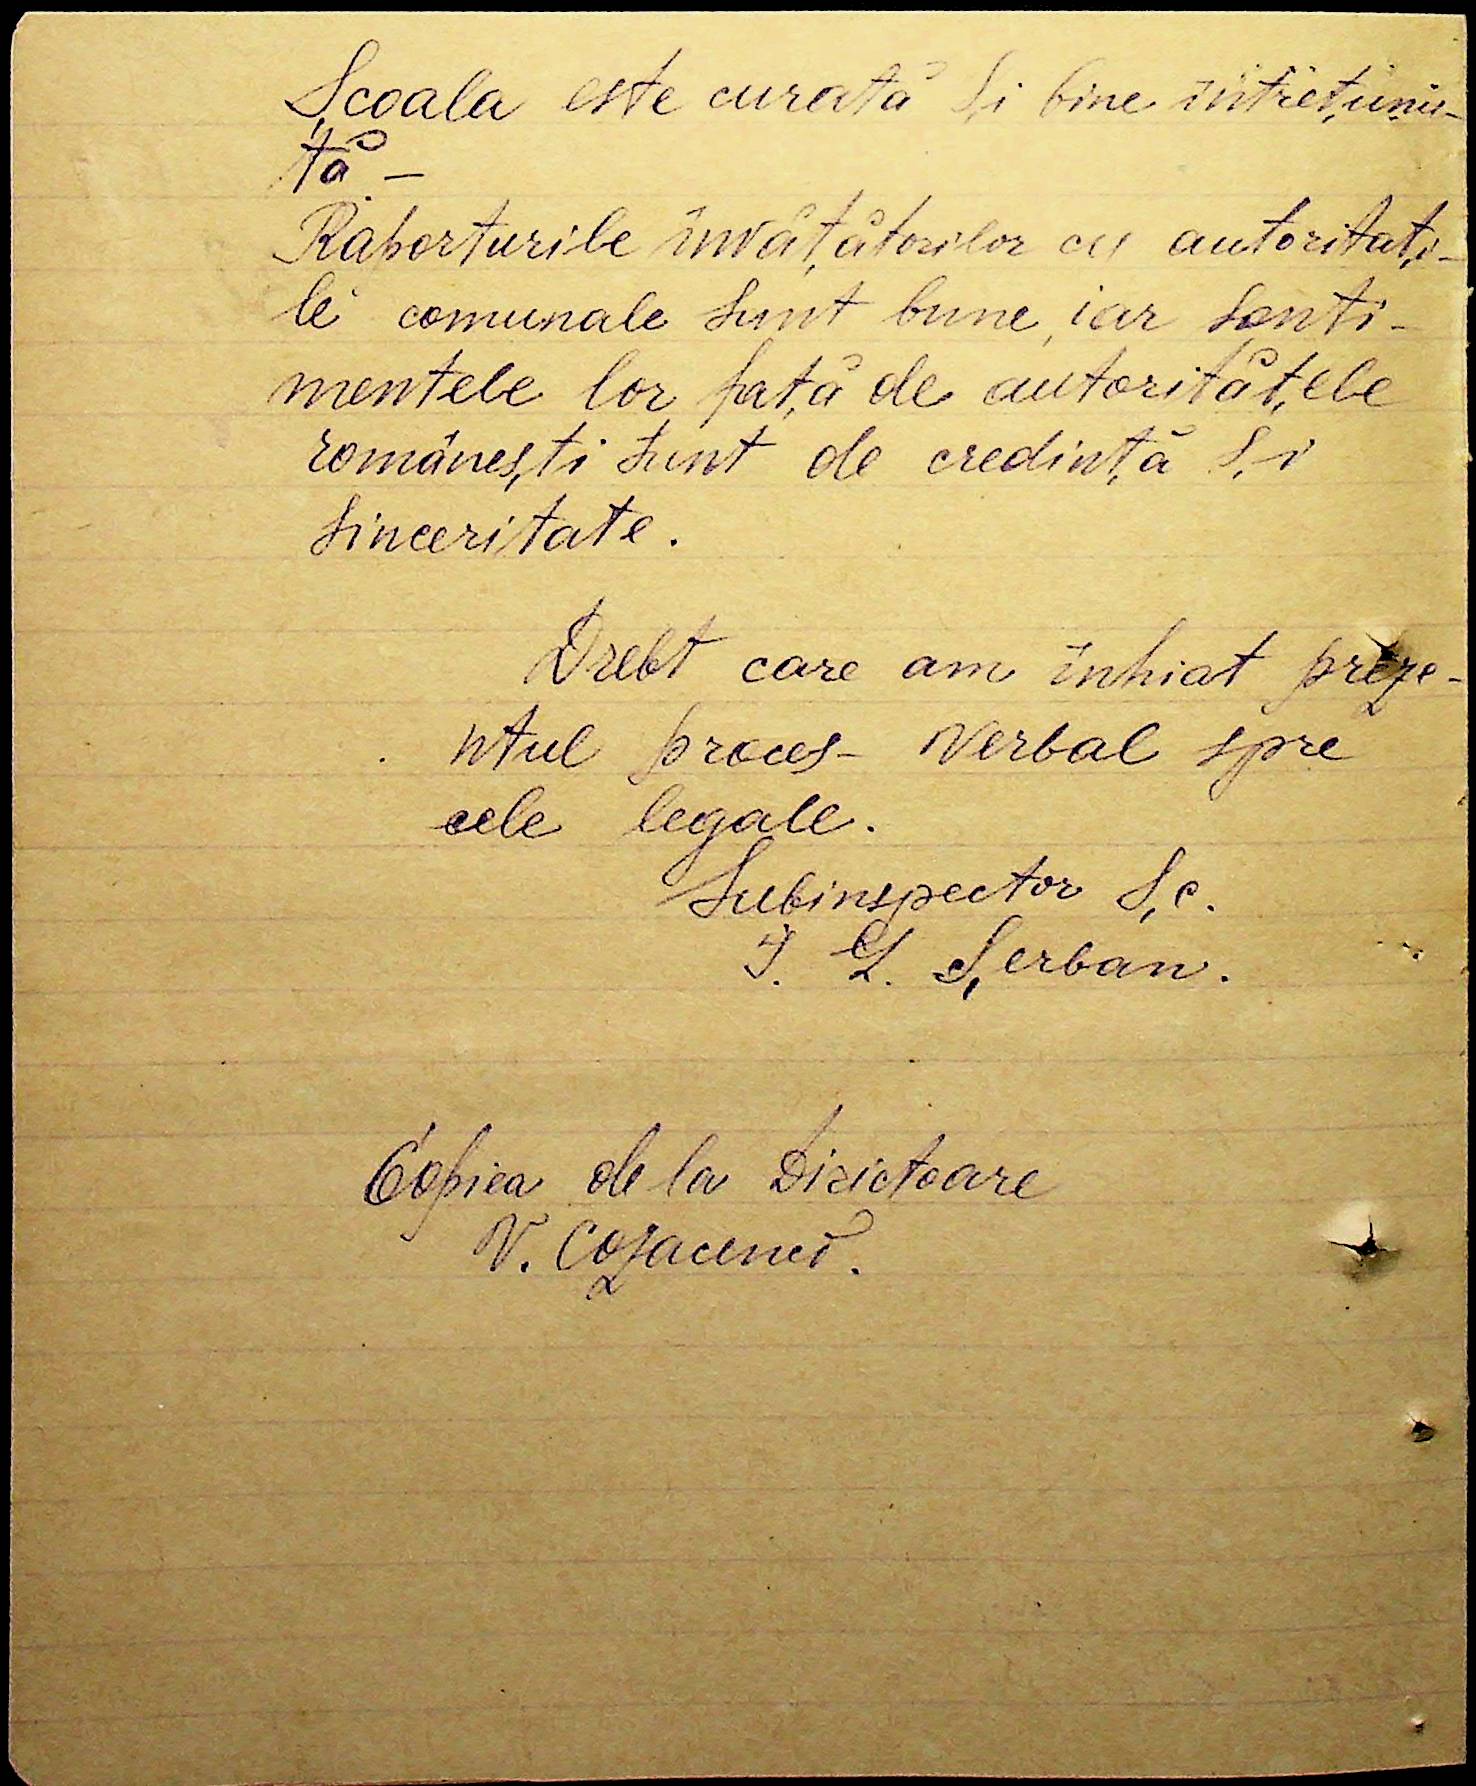 Școala este curată și bine întreținu-
tă –
Raporturile învățătorilor cu autoritați-
le comunale sunt bune, iar senti-
mentele lor față de autoritățele
românești sunt de credință și
sinceritate.
Drebt care am înhiat preze-
ntul proces- verbal spre
cele legale.
Subinspector Șc.
I. G. Șerban.
Copiea de la Dirictoare
V.